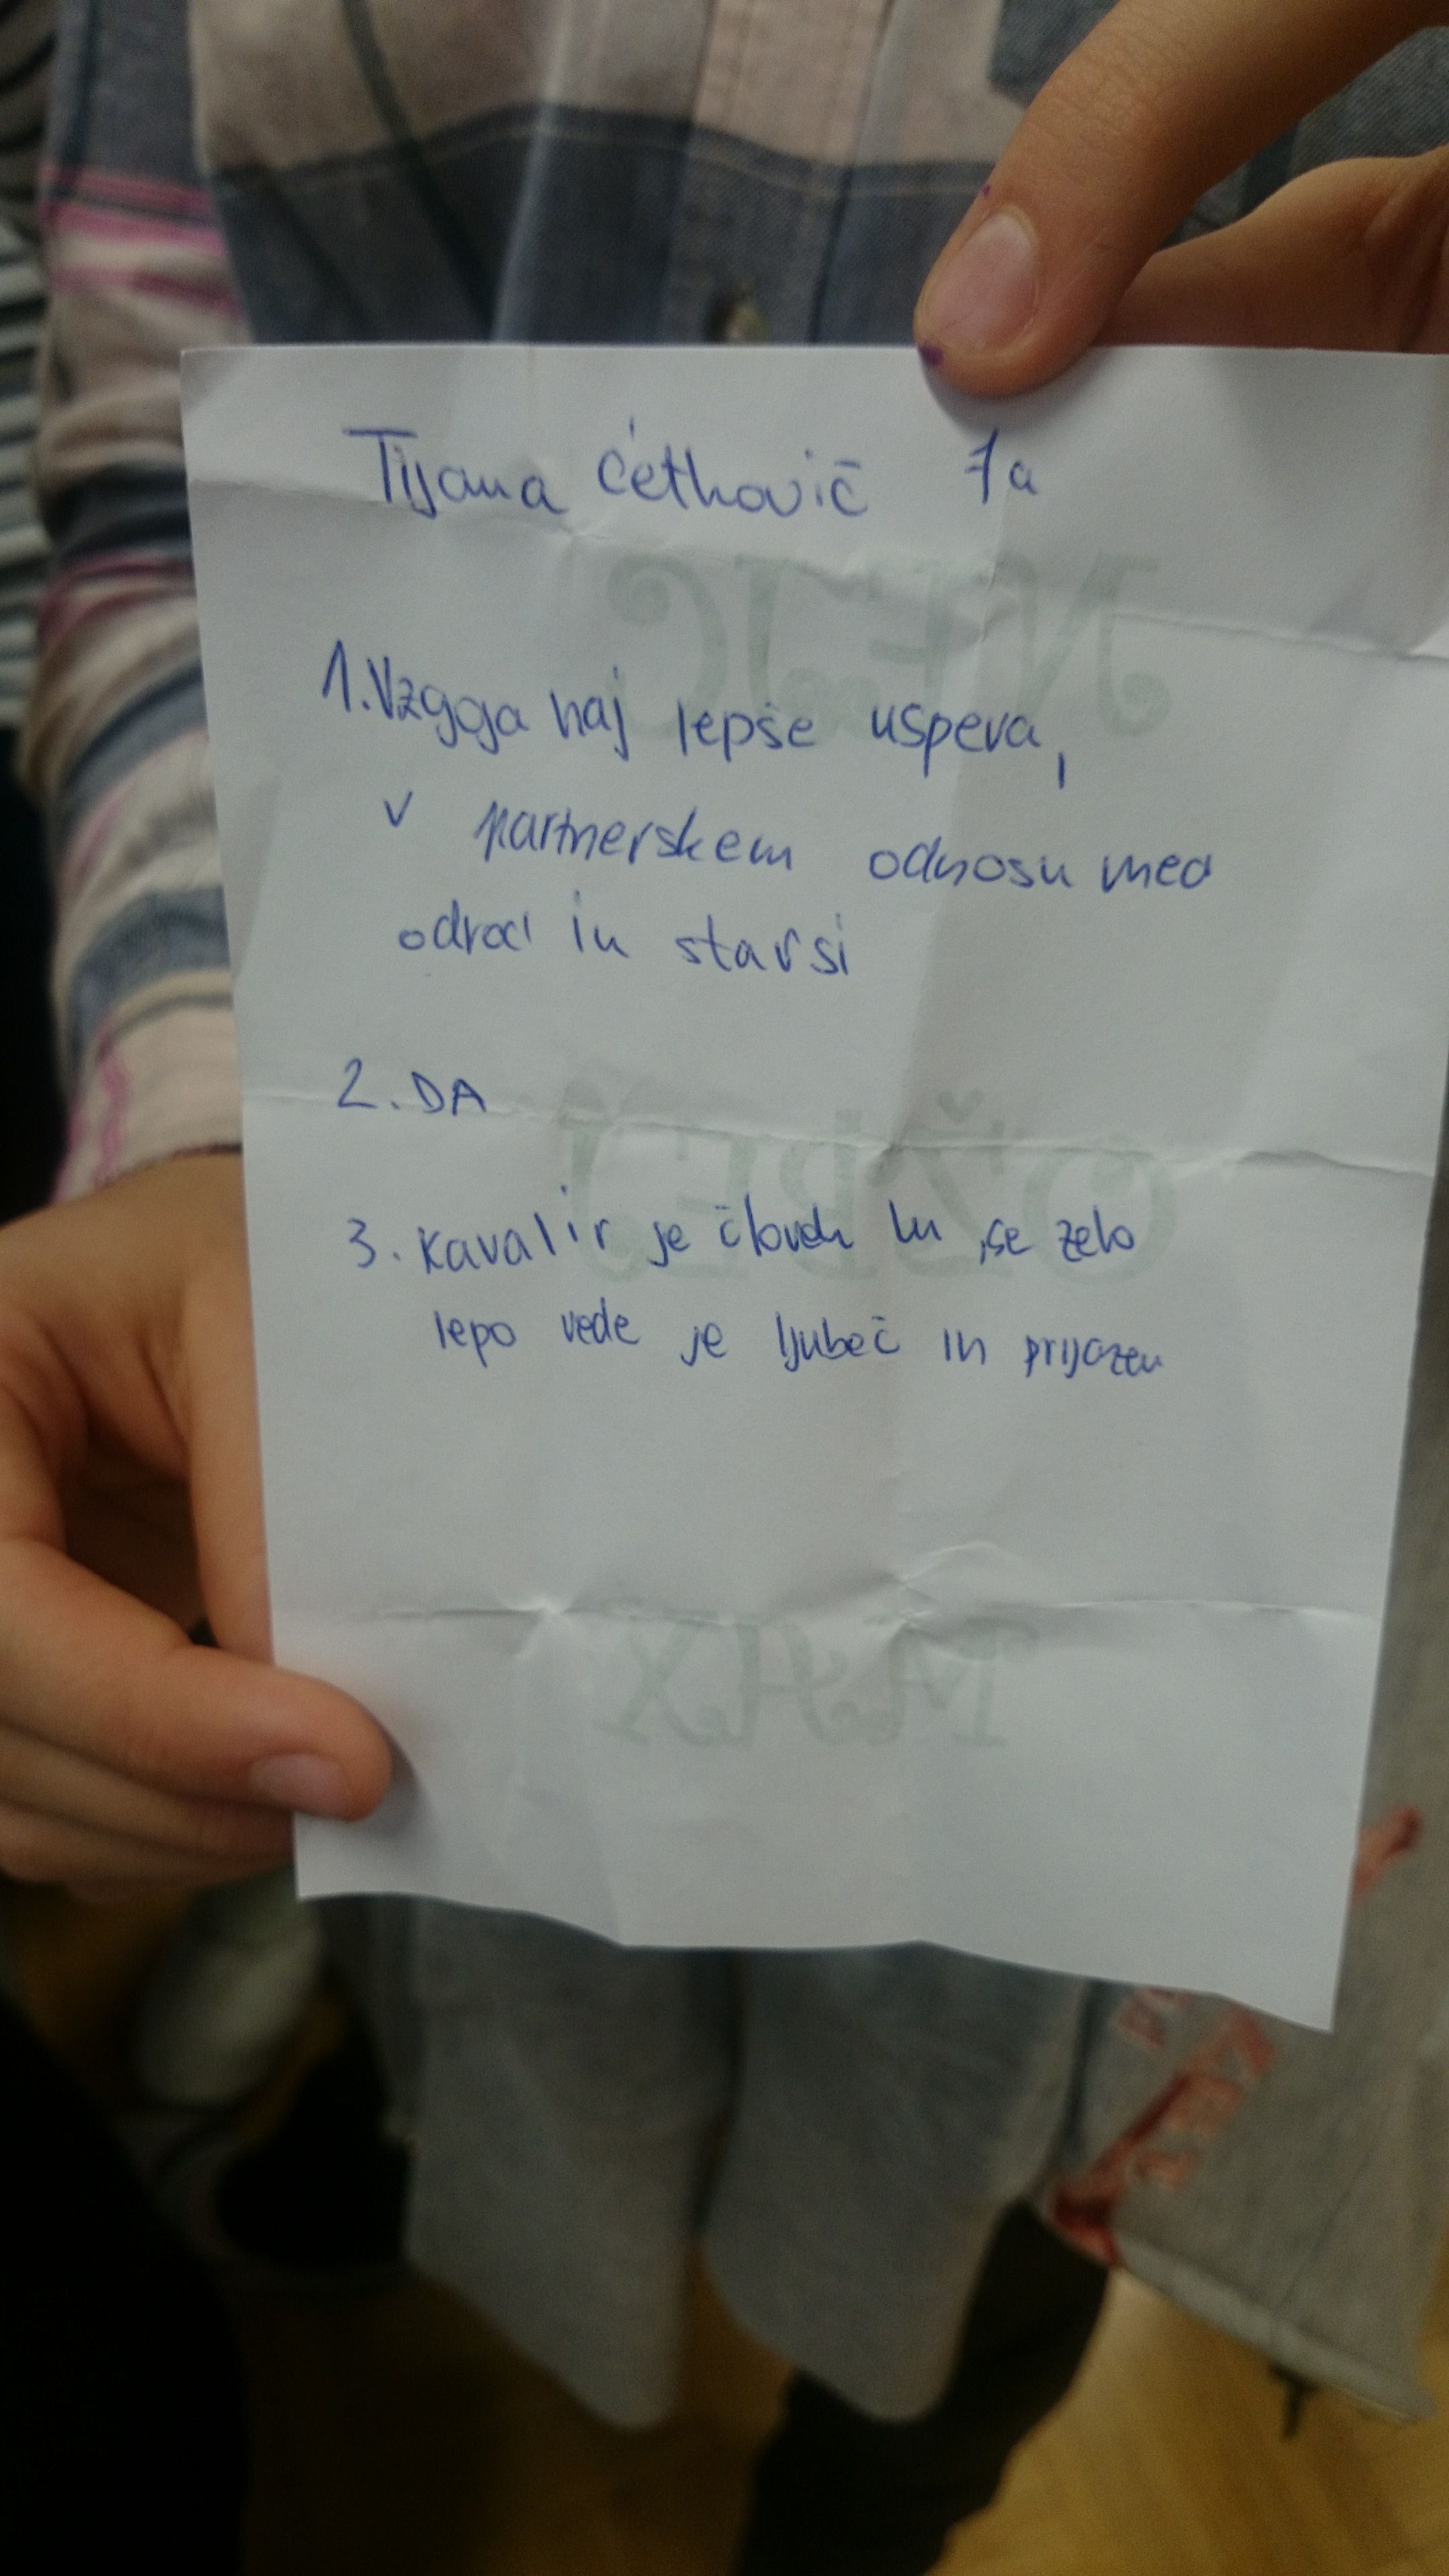 Tijana Ćetković 7a
1. Vzgoja naj lepše uspeva,
v partnerskem odnosu med
odroci in starši
2. DA
3. Kavalir je človek ki se zelo
lepo vede je ljubeč in prijazen
NEJC
OŽBEJ
MAX